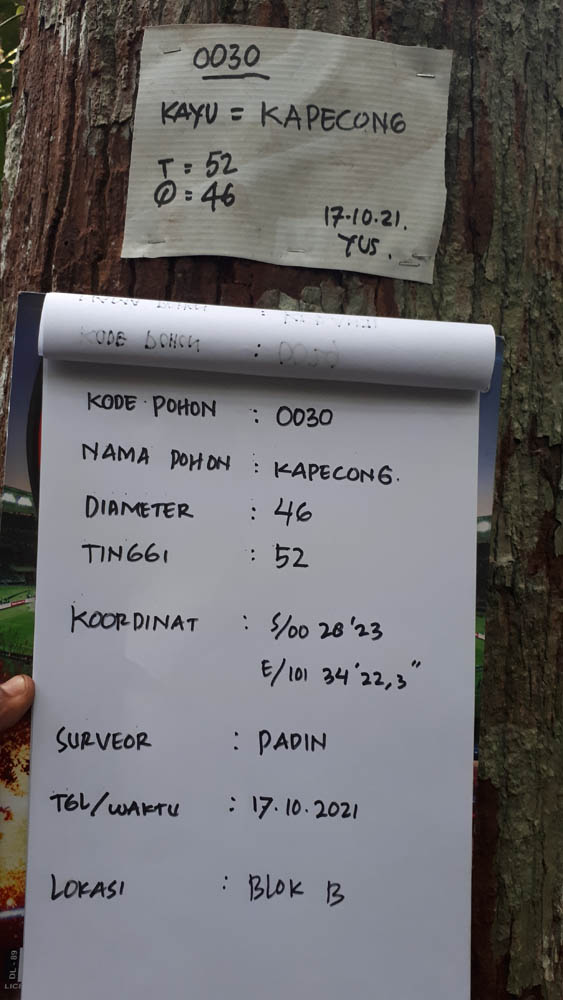 0030
KAYU = KAPECONG
T = 52
Ø = 46
17.10.21.
YUS.
KODE POHON : 0030
KODE POHON : 0030
NAMA POHON : KAPECONG.
DIAMETER : 46
TINGGI : 52
KOORDINAT : S/00 28'23
E/101 34'22,3"
SURVEOR : PADIN
TGL/WAKTU : 17.10.2021
LOKASI : BLOK B
DL-89